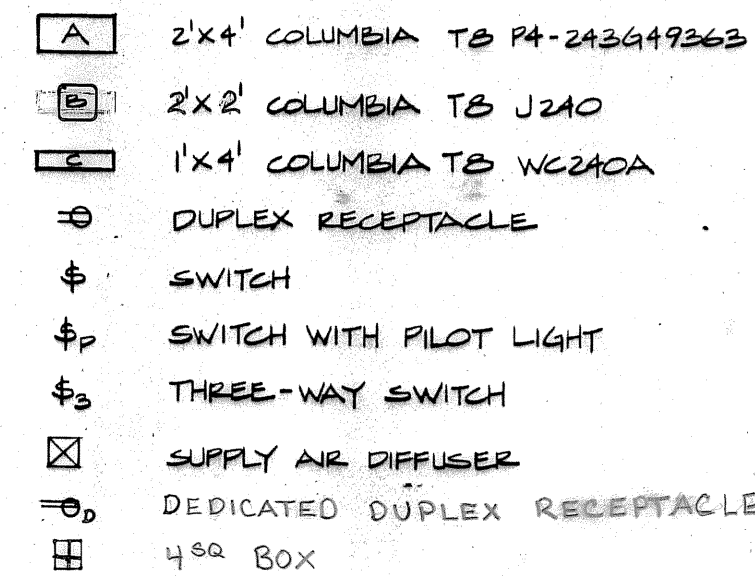 A 2'X4' COLUMBIA T8 P4-243G49363
B 2'X2' COLUMBIA T8 J240
C 1'X4' COLUMBIA T8 WC240A
DUPLEX RECEPTACLE
$ SWITCH
$P SWITCH WITH PILOT LIGHT
$3 THREE-WAY SWITCH
SUPPLY AIR DIFFUSER
D DEDICATED DUPLEX RECEPTACLE
4 SQ BOX